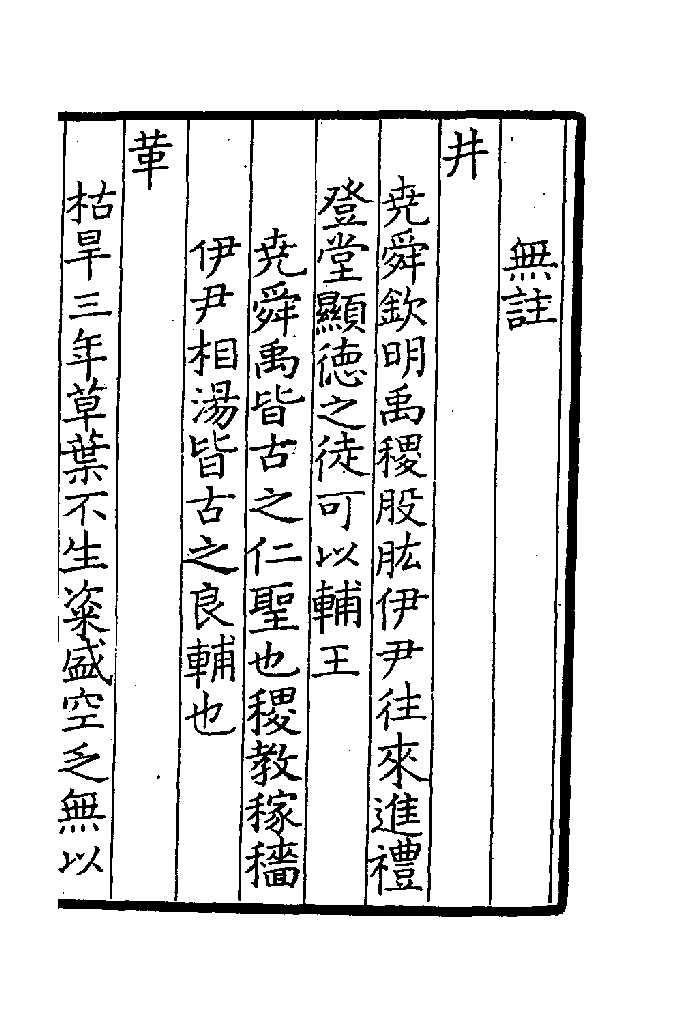 無註
井
堯舜欽明禹稷股肱伊尹往來進禮
登堂顯徳之徒可以輔王
堯舜禹皆古之仁聖也稷教稼穡
伊尹相湯皆古之良輔也
革
枯旱三年草葉不生粢盛空乏無以